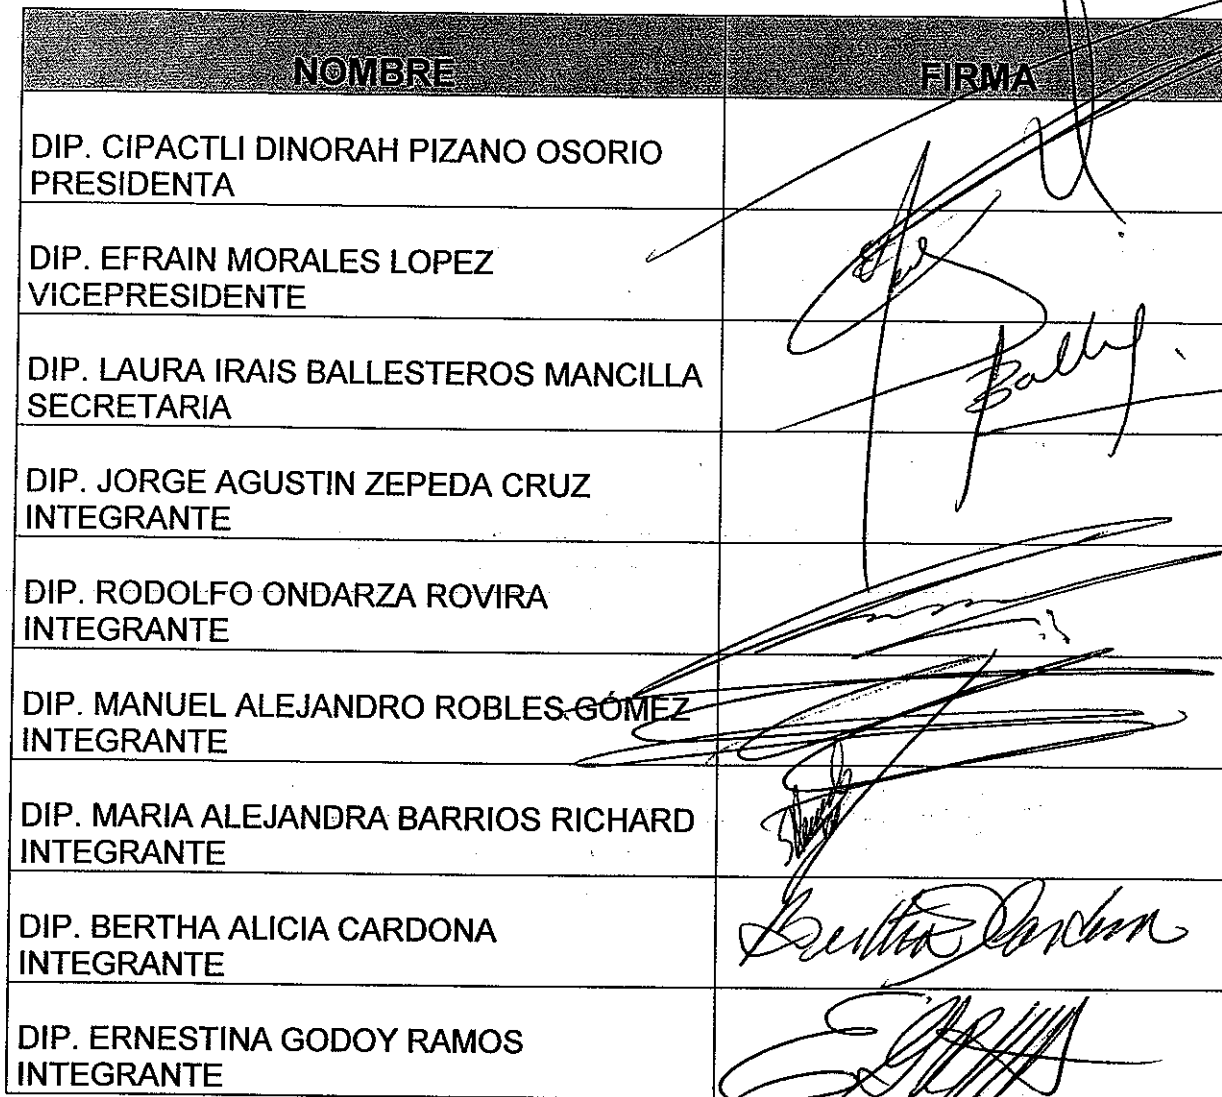 NOMBRE FIRMA
DIP. CIPACTLI DINORAH PIZANO OSORIO
PRESIDENTA
DIP. EFRAIN MORALES LOPEZ
VICEPRESIDENTE
DIP. LAURA IRAIS BALLESTEROS MANCILLA
SECRETARIA
DIP. JORGE AGUSTIN ZEPEDA CRUZ
INTEGRANTE
DIP. RODOLFO ONDARZA ROVIRA
INTEGRANTE
DIP. MANUEL ALEJANDRO ROBLES GÓMEZ
INTEGRANTE
DIP. MARIA ALEJANDRA BARRIOS RICHARD
INTEGRANTE
DIP. BERTHA ALICIA CARDONA
INTEGRANTE
Bertha Cardona
DIP. ERNESTINA GODOY RAMOS
INTEGRANTE